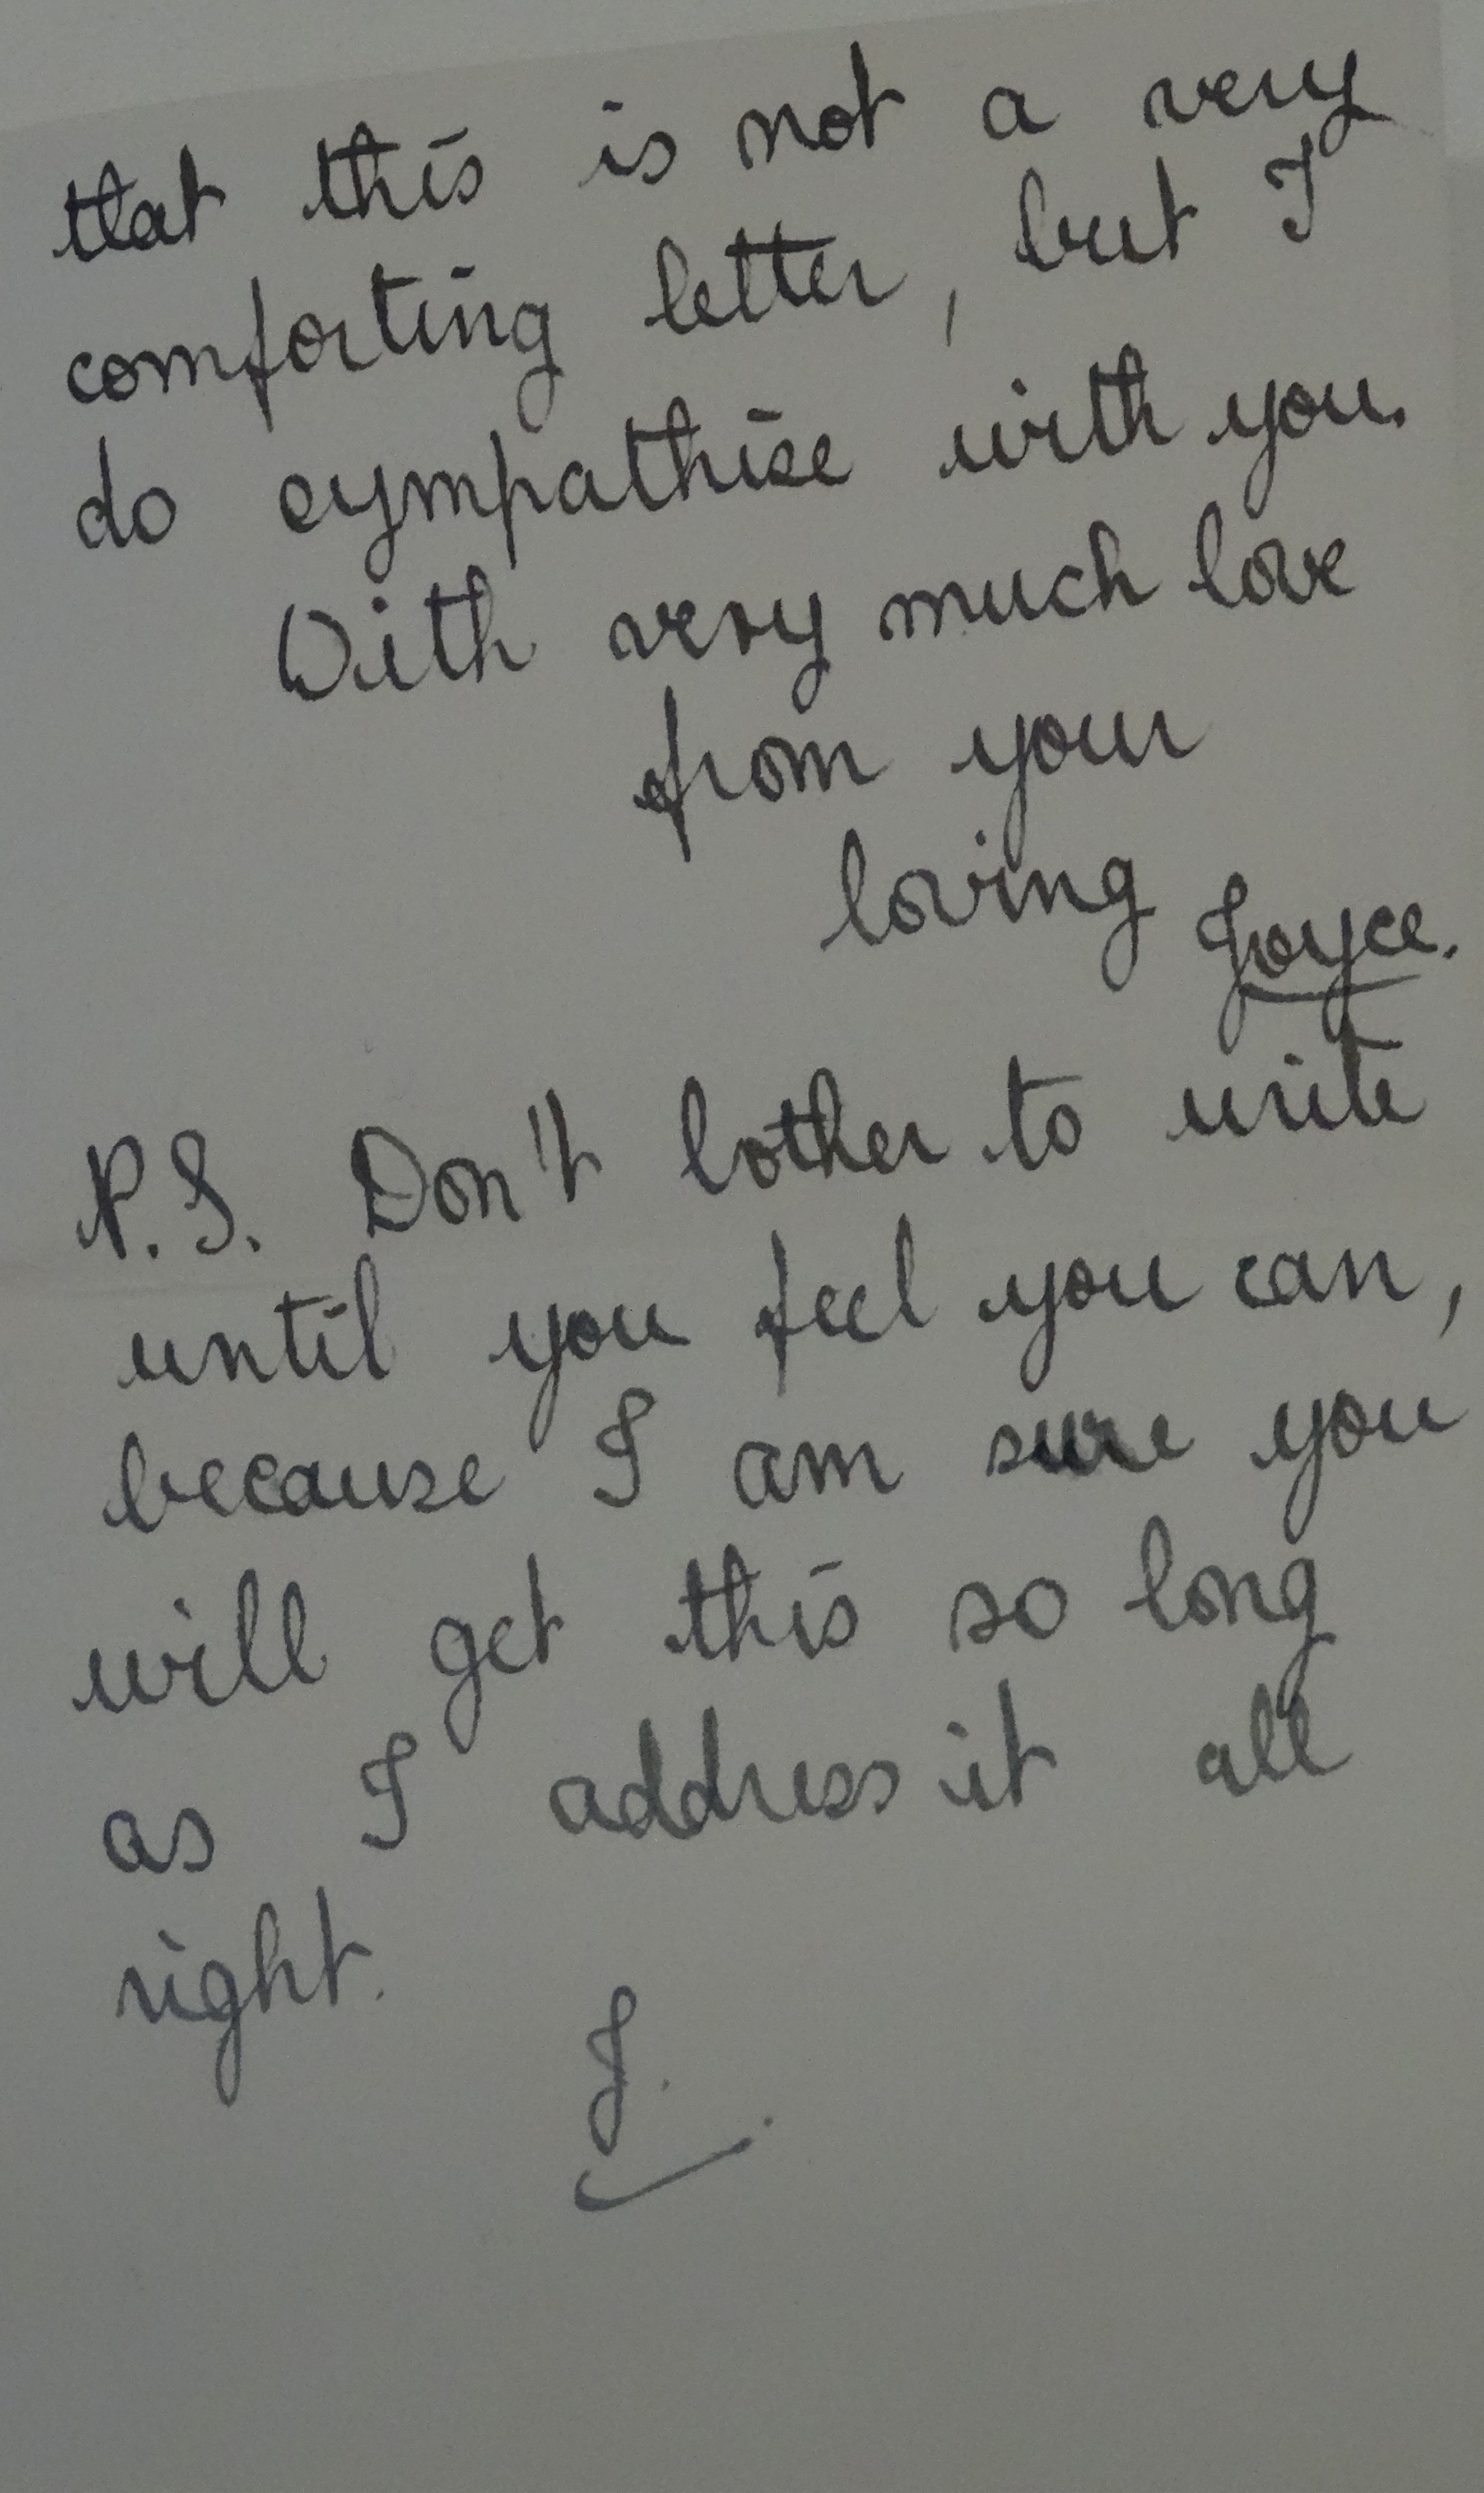 that this is not a very
comforting letter, but I
do sympathise with you.
With very much love
from your
loving Joyce.
P.S. Don't bother to write
until you feel you can,
because I am sure you
will get this so long
as I address it all
right.
J.